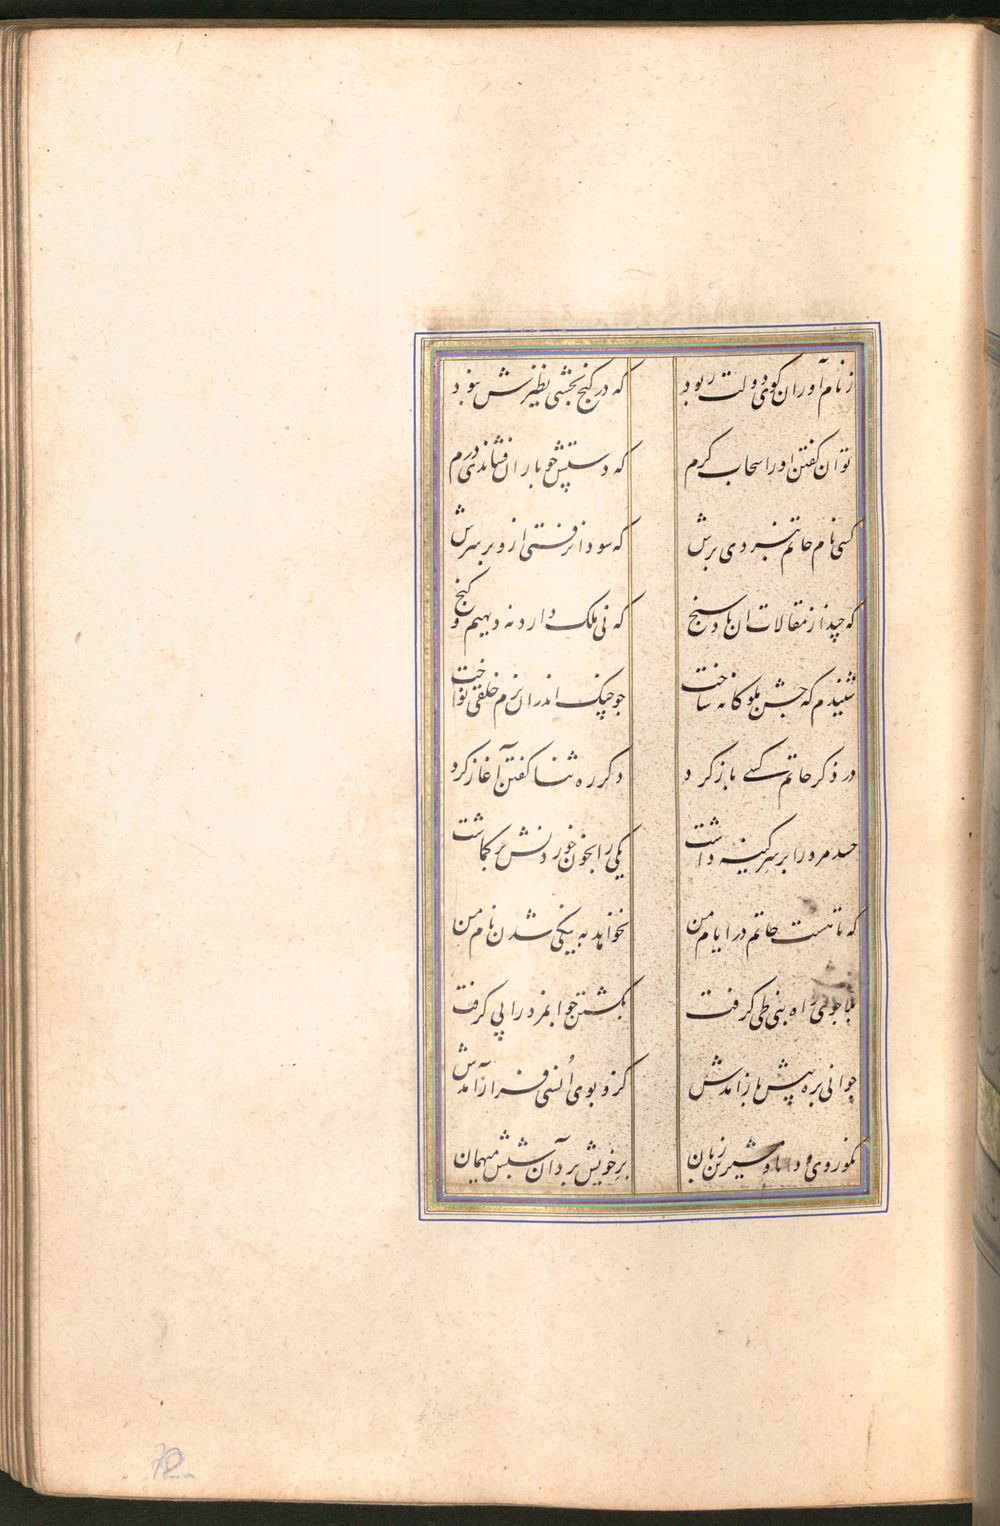 ز نام آوران گوی دولت ربود که در گنج بخشی نظیرش نبود
توان گفتن اورا سحاب کرم که دستش چو باران فشاندی درم
کسی نام حاتم نبردی برش که سودا نرفتی ازو بر سرش
که چند از مقالات آن باد سنج که نی ملک دارد نه دیهیم و گنج
شنیدم که جشن ملوکانه ساخت چو چنگ اندران بزم خلقی نواخت
در ذکر حاتم کسی باز کرد دگر ره ثنا گفتن آغاز کرد
حسد مرد را بر سر کینه داشت یکی را بخون خوردنش بر گماشت
که تا هست حاتم در ایام من نخواهد به نیکی شدن نام من
بلا جوی راه بنی طی گرفت بکشتن جوانمرد را پی گرفت
جوانی بره پیش باز آمدش کزو بوی اُنسی فراز آمدش
نکو روی و دانا و شیرین زبان بر خویش برد آن شبش میهمان
72